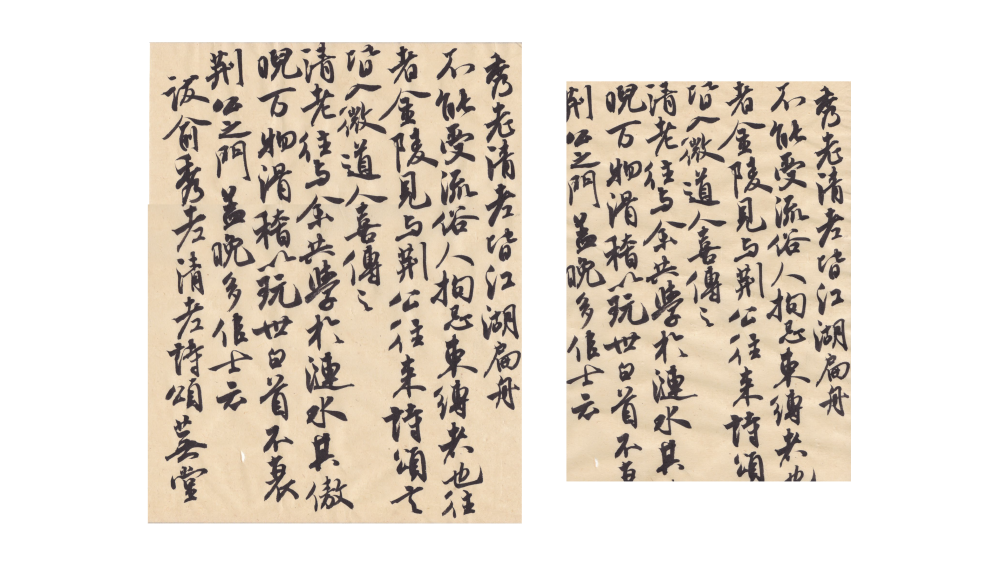 秀老清老皆江湖扁舟
不能受流俗人拘忌束縛者也往
者金陵見与荊公往来詩頌言
皆入微道人喜傳之
清老往与余共學於漣水其傲
睨万物滑稽以玩世白首不衰
荊公之門蓋晚多佳士云
跋俞秀老清老詩頌 蕪堂
秀老清老皆江湖扁舟
不能受流俗人拘忌束縛者也
者金陵見与荊公往来詩頌
皆入微道人喜傳之
清老往与余共學於漣水其
睨万物滑稽以玩世白首不
荊公之門蓋晚多佳士云